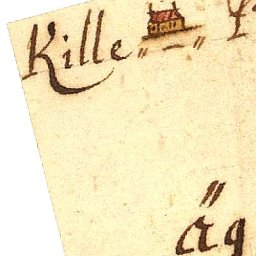 Kille
Äg